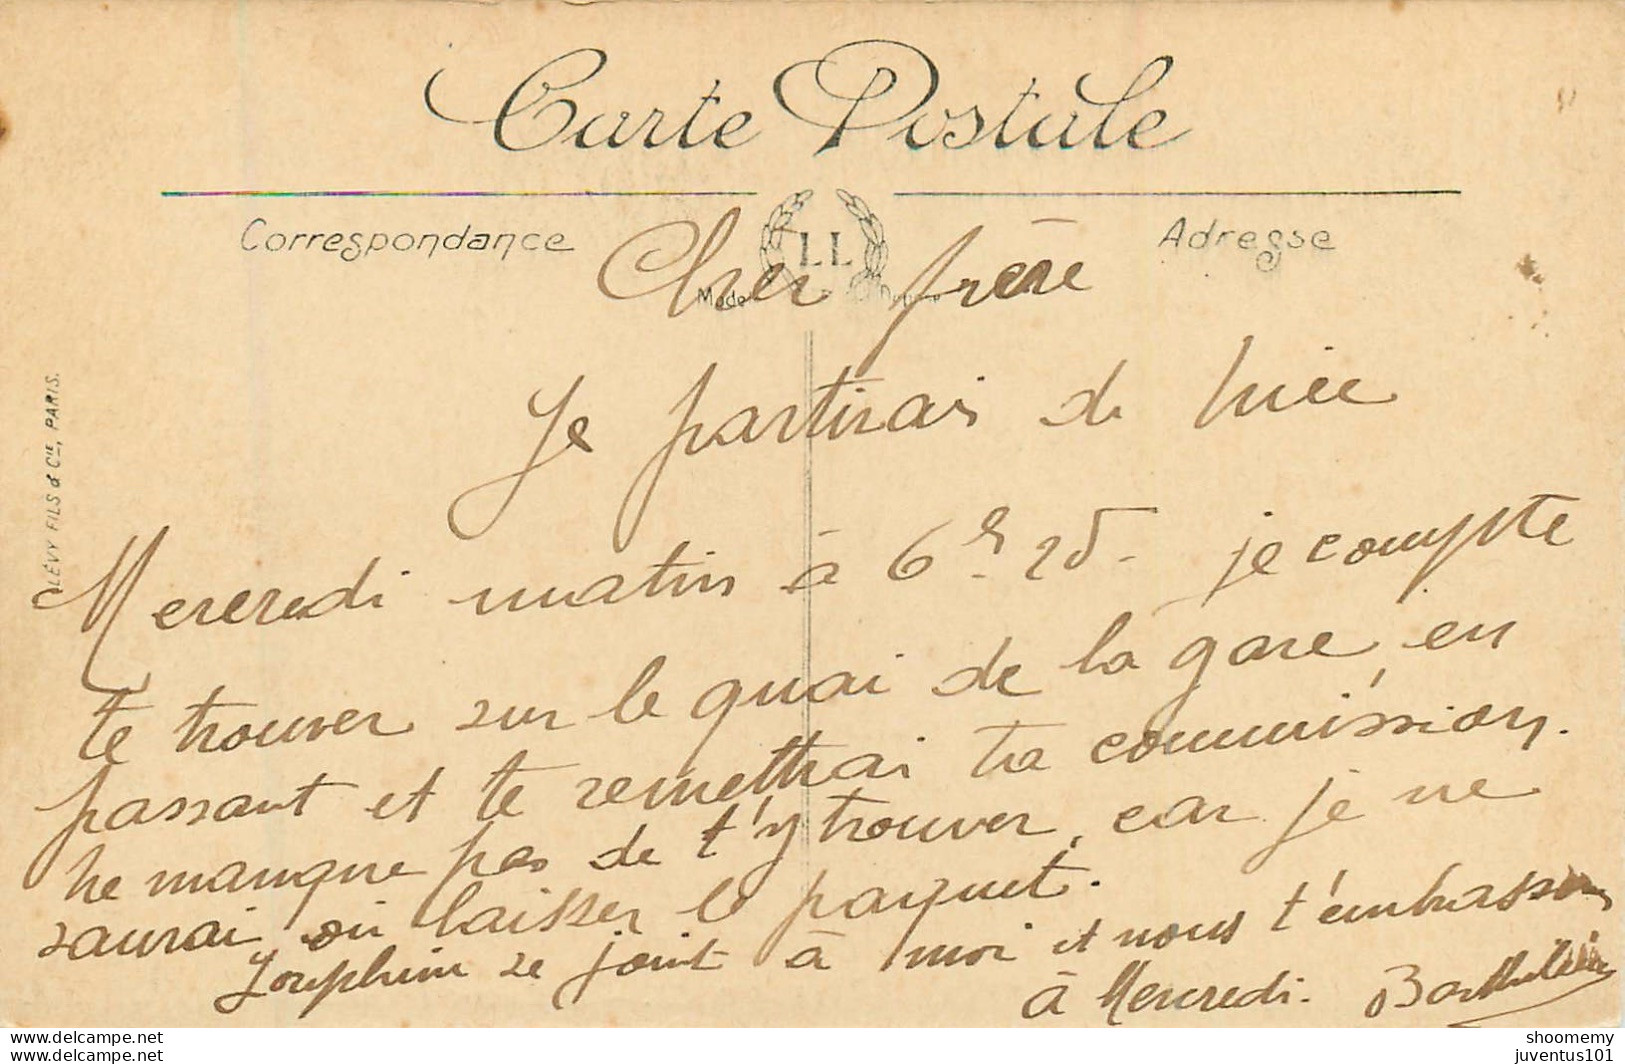 Carte Postale
Correspondance
LL
Adresse
Cher frère
Je partirai de Nice
Mercredi matin à 6h. 25. je compte
te trouver sur le quai de la gare, en
passant et te remettrai ta commission.
Ne manque pas de t'y trouver, car je ne
saurai où laisser le paquet.
Josephine se joint à moi et nous t'embrassons
à Mercredi.
LÉVY FILS & Cie, PARIS.
shoomemy
juventus101